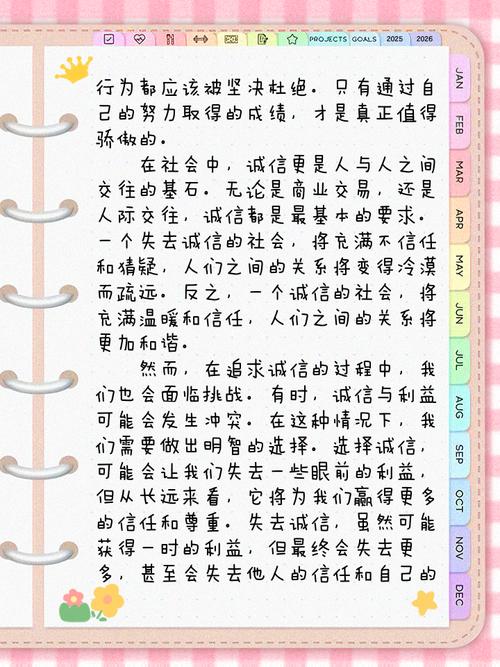 PROJECTS GOALS 2025 2026
行为都应该被坚决杜绝。只有通过自
己的努力取得的成绩，才是真正值得
骄傲的。
在社会中，诚信更是人与人之间
交往的基石。无论是商业交易，还是
人际交往，诚信都是最基本的要求。
一个失去诚信的社会，将充满不信任
和猜疑，人们之间的关系将变得冷漠
而疏远。反之，一个诚信的社会，将
充满温暖和信任，人们之间的关系将
更加和谐。
然而，在追求诚信的过程中，我
们也会面临挑战。有时，诚信与利益
可能会发生冲突。在这种情况下，我
们需要做出明智的选择。选择诚信，
可能会让我们失去一些眼前的利益，
但从长远来看，它将为我们赢得更多
的信任和尊重。失去诚信，虽然可能
获得一时的利益，但最终会失去更
多，甚至会失去他人的信任和自己的
JAN
FEB
MAR
APR
MAY
JUN
JUL
AUG
SEP
OCT
NOV
DEC